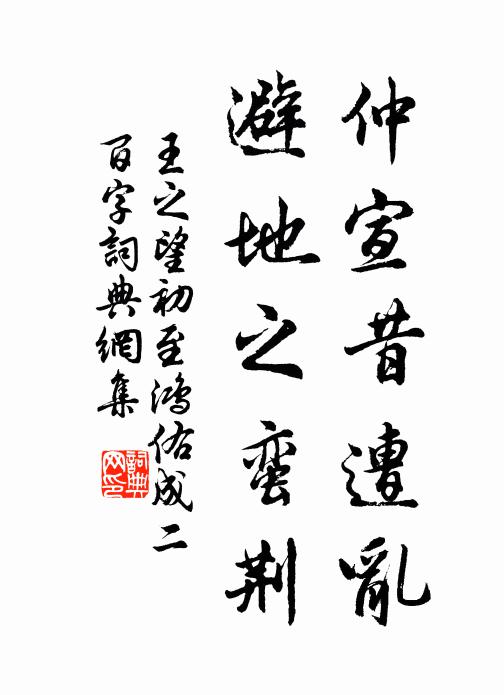 仲宣昔遭亂
避地之蛮荆
王之望初至鴻佑成二
百字詞典網集
詞典網印